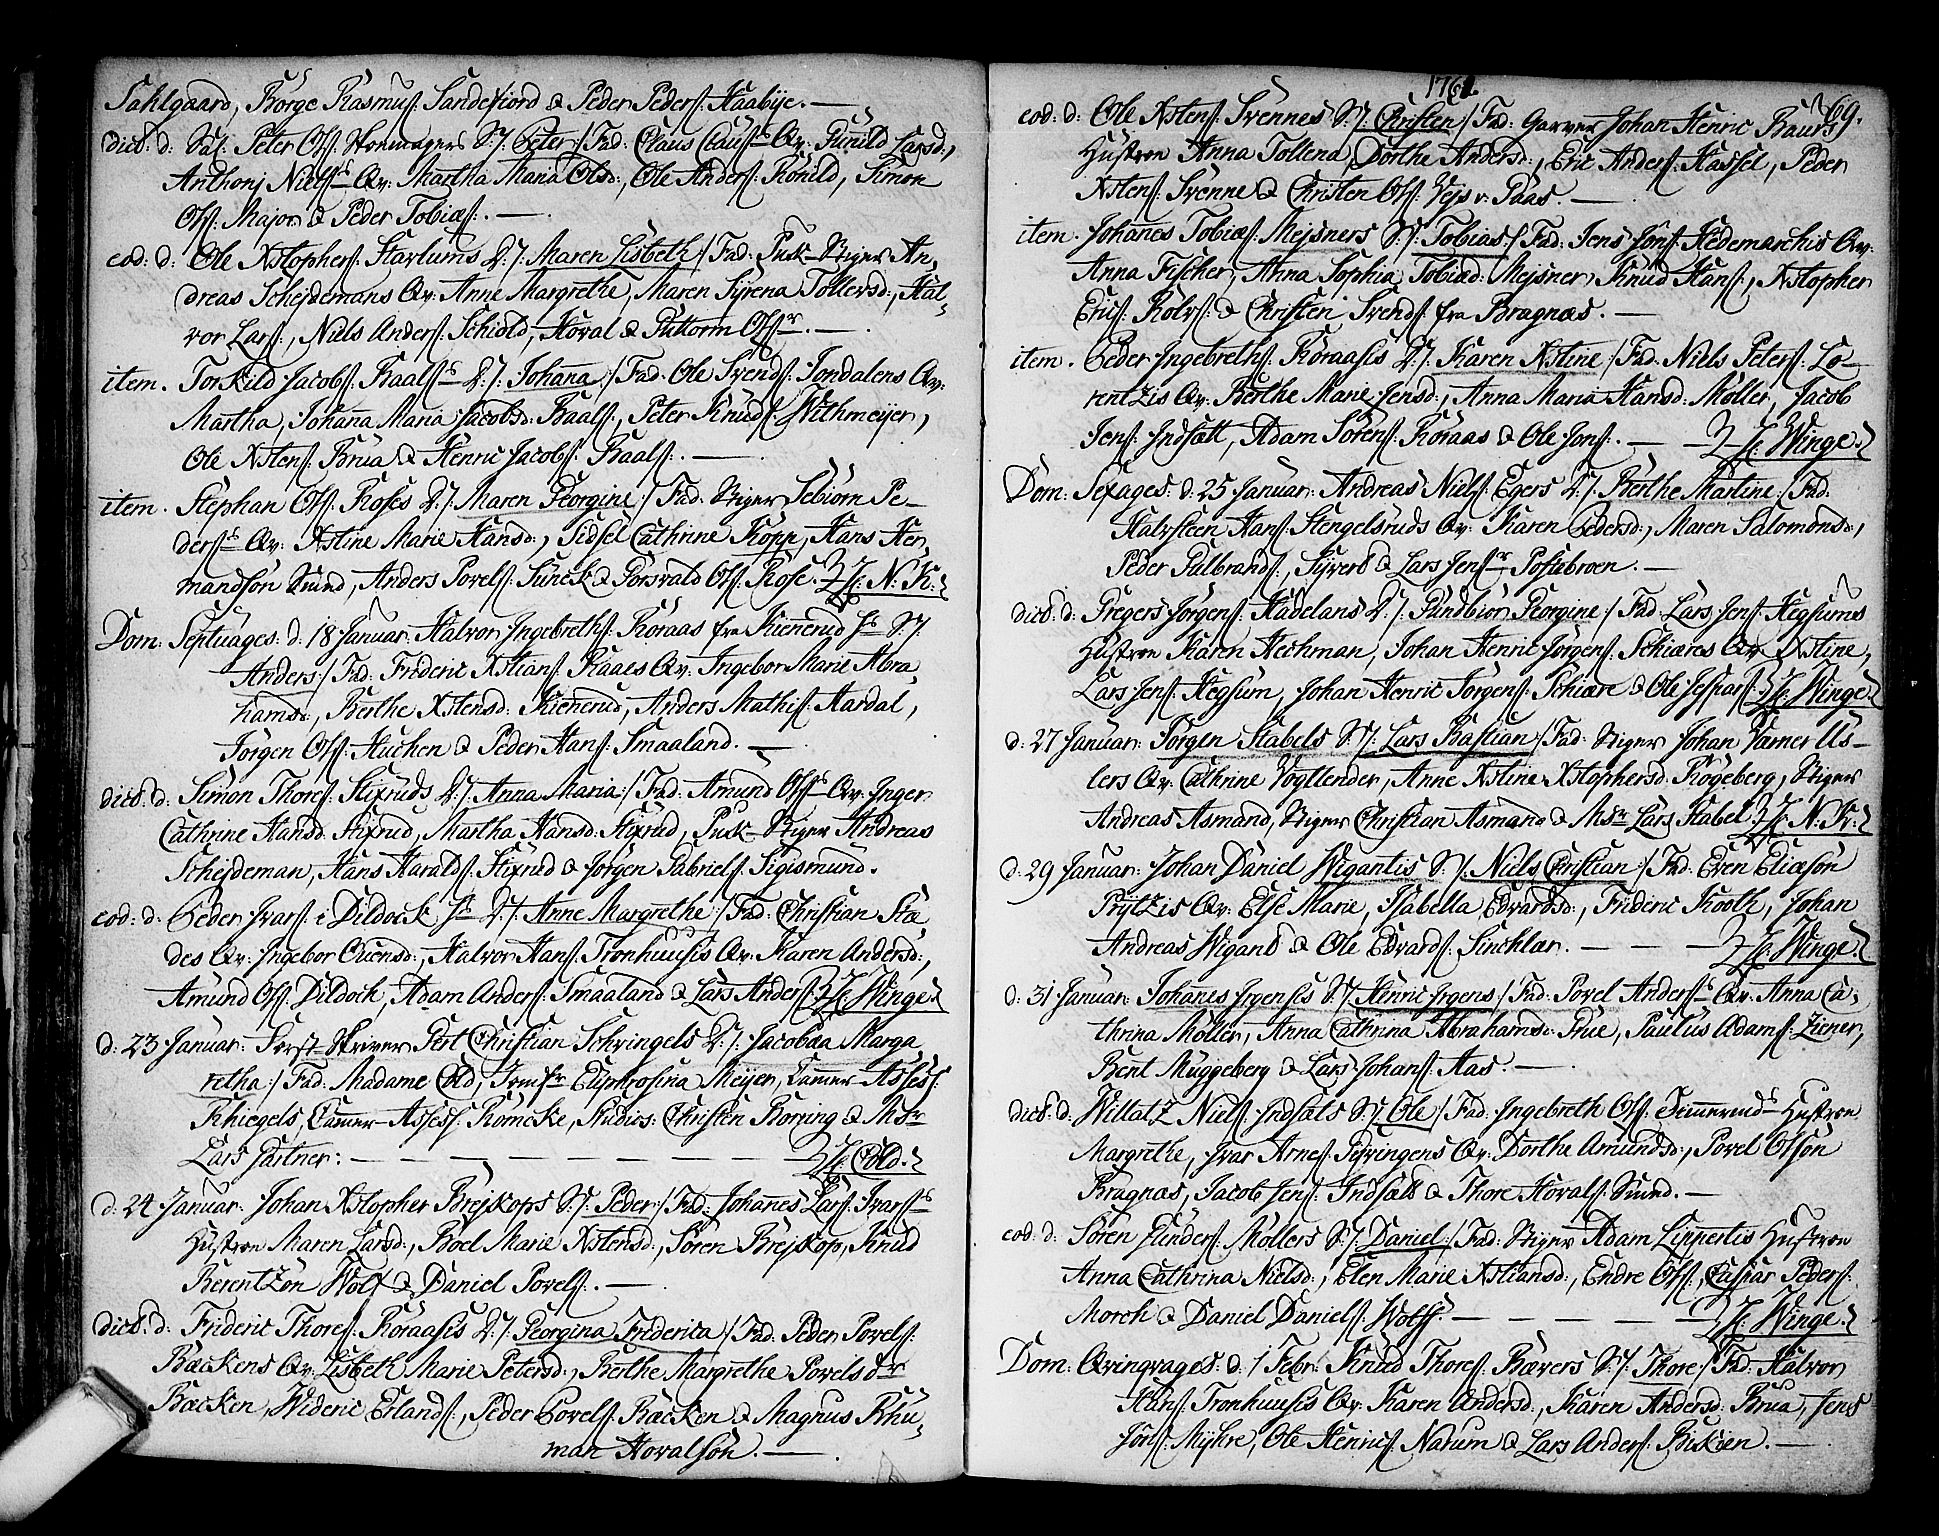 Sahlgaard, Börge Rasmuſ: Sandefiord & Peder Pederſ: Haabÿe. —
dict: d: Sal: Peter Olſ: S:/: Peter/: Fad: Claus Clauſ:s Qv: Gunild Larsd:,
Anthonj Nielſ:s Qv: Martha Maria Olsd:, Ole Anderſ: Rönild, Simon
Olſ: Major & Peder Tobiæſ:. —
eod: d: Ole Xstopherſ: Starlums D:/: Maren Lisbeth/: Fad: Puk-Stiger An-
dreas Schejdemans Qv: Anne Margrethe, Maren Sÿrena Tollersd:, Hal-
vor Larſ:, Niels Anderſ: Schiold, Hoval & Guttorm Olſ:r. —
item. Torkild Jacobſ: Raalſ:s D:/: Johana/: Fad: Ole Svendſ: Jondalens Qv:
Martha, Johana Maria Jacobsd: Raalſ:, Peter Knudſ: Withmeÿer,
Ole Xstenſ: Brua & Henric Jacobſ: Raalſ:. —
item. Stephan Olſ: Roses D:/: Maren Georgine:/ Fad: Stiger Sebiörn Pe-
derſ:s Qv: Xstine Marie Hansd:, Sidsel Cathrine Kopp, Hans Her-
mandsön Smud, Anders Povelſ: Funck & Torsvald Olſ: Rose. H: N: K:
Dom: Septuages: d: 18 Januar: Halvor Ingebrethſ: Koraas fra Kienerud S:/:
Anders:/ Fad: Frideric Xstianſ: Raaes Qv: Ingebor Marie Abra
hamsd:, Berthe Xstensd: Kienerud, Anders Mathiſ: Aardal,
Jörgen Olſ: Huchen & Peder Hanſ: Smaaland. —
dict: d: Simon Thoreſ: Stixruds D:/: Anna Maria:/ Fad: Amund Olſ:s Qv: Inger
Cathrine Hansd: Stixrud, Martha Hansd: Stixrud, Puk-Stiger Andreas
Schejdeman, Hans Haraldſ: Stixrud & Jörgen Gabrielſ: Sigismund.
eod: d: Peder Ivarſ: i Dildock D:/: Anne Margrethe:/ Fad: Christian Stæ
des Qv: Ingebor Evensd:, Halvor Hanſ: Tronhuusis Qv: Karen Andersd:,
Amund Olſ: Dildoch, Adam Anderſ: Smaaland & Lars Anderſ: H: Winge.
d: 23 Januar: Forst-Skriver Gert Christian Schringels D:/: Jacobæa Marga
retha:/ Fad: Madame Cold, Jomfr: Euphrosina Meÿer, Camer-Assess:
Schiegels, Camer-Assess: Römcke, Studios: Christen Borring & Msr
Lars Gartner: — — — — — — H: Cold.
d: 24 Januar: Johan Xstopher Brejskops S:/: Peder:/ Fad: Johanes Larſ: Ivarſ:s
Hustroe Maren Larsd:, Boel Marie Xstensd:, Sören Brejskop, Knud
Berentzön Wolf & Daniel Povelſ:. —
dict: d: Frideric Thoreſ: Koraasis D:/: Georgina Friderica:/ Fad: Peder Povelſ:
Backens Qv: Lisbeth Marie Petersd:, Berthe Margrethe Povelsdr
Bæcken, Wideric Erlandſ:, Peder Povelſ: Bæcken & Magnus Rhu-
man Hovalsön. —
1761.
69.
eod: d: Ole Xstenſ: Svennes S:/: Christen/: Fad: Garver Johan Henric Baurs
Hustroe Anna Tollena, Dorthe Andersd:, Eric Anderſ: Hassel, Peder
Xstenſ: Svenne & Christen Olſ: Vejs v: Paas. —
item. Johanes Tobiæſ: Mejsners S:/: Tobias/: Fad: Jens Jonſ: Hedemarchis Qv:
Anna Fischer, Anna Sophia Tobiæd: Mejsner, Knud Hanſ:, Xstopher
Ericſ: Rolvſ: & Christen Svendſ: fra Bragnæs. —
item. Peder Ingebrethſ: Koraasis D:/: Karen Xstine:/ Fad: Niels Peterſ: Lo-
rentzis Qv: Berthe Marie Jensd:, Anna Maria Hansd: Möller, Jacob
Jenſ: Indsatt, Adam Sörenſ: Koraas & Ole Jonſ:. — H: Winge.
Dom: Sexages: d: 25 Januar: Andreas Nielſ: Egers D:/: Berthe Martine:/ Fad:
Halvsteen Hanſ: Stengelsruds Qv: Karen Pedersd:, Maren Salomonsd:,
Peder Gulbrandſ:, Sÿvert & Lars Jenſ:r Postebroen. —
dict: d: Gregers Jörgenſ: Hadelans D:/: Gundbiör Georgine:/ Fad: Lars Jenſ: Hegsums
Hustroe Karen Hechman, Johan Henric Jörgenſ: Schiæres Qv: Xstine,
Lars Jenſ: Hegsum, Johan Henric Jörgenſ: Schiære & Ole Jesparſ: H: Winge.
d: 27 Januar: Jörgen Stabels S:/: Lars Bastian:/ Fad: Stiger Johan Varner Us-
lers Qv: Cathrine Vogtlender, Anne Xstine Xstophersd: Rögeberg, Stiger
Andreas Asmand, Stiger Christian Asmand & Msr Lars Stabel. H: N: K:
d: 29 Januar: Johan Daniel Wigantis S:/: Niels Christian:/ Fad: Even Eliæsön
Prÿtzis Qv: Else Marie, Isabella Edvardsd:, Frideric Kooth, Johan
Andreas Wigant & Ole Edvardſ: Sinchlær. — — — H: Winge.
d: 31 Januar: Johanes Irgensis S:/: Henric Irgens:/ Fad: Povel Anderſ:s Qv: Anna Ca-
thrina Möller, Anna Cathrina Abrahamsd: Prüe, Paulus Adamſ: Ziener,
Bent Müggeberg & Lars Johanſ: Aas. —
dict: d: Willatz Nielſ: Indsats S:/: Ole:/ Fad: Ingebreth Olſ: Hustroe
Margrethe, Ivar Arneſ: Sevringens Qv: Dorthe Amundsd:, Povel Olsön
Bragnæs, Jacob Jenſ: Indsatt & Thore Hovalſ: Smud. —
eod: d: Sören Gunderſ: Möllers S:/: Daniel:/ Fad: Stiger Adam Lippertis Hustroe
Anna Cathrina Nielsd:, Elen Marie Xstiansd:, Endre Olſ:, Caspar Pederſ:
Morch & Daniel Danielſ: Wolff. — — — — — H: Winge.
Dom: Qvinqvages: d: 1 Febr: Knud Thoreſ: Bævers S:/: Thore:/ Fad: Halvor
Hanſ: Tronhuusis Qv: Karen Andersd:, Karen Andersd: Brua, Jens
Jonſ: Mÿhre, Ole Henricſ: Narum & Lars Anderſ: Bickien. —